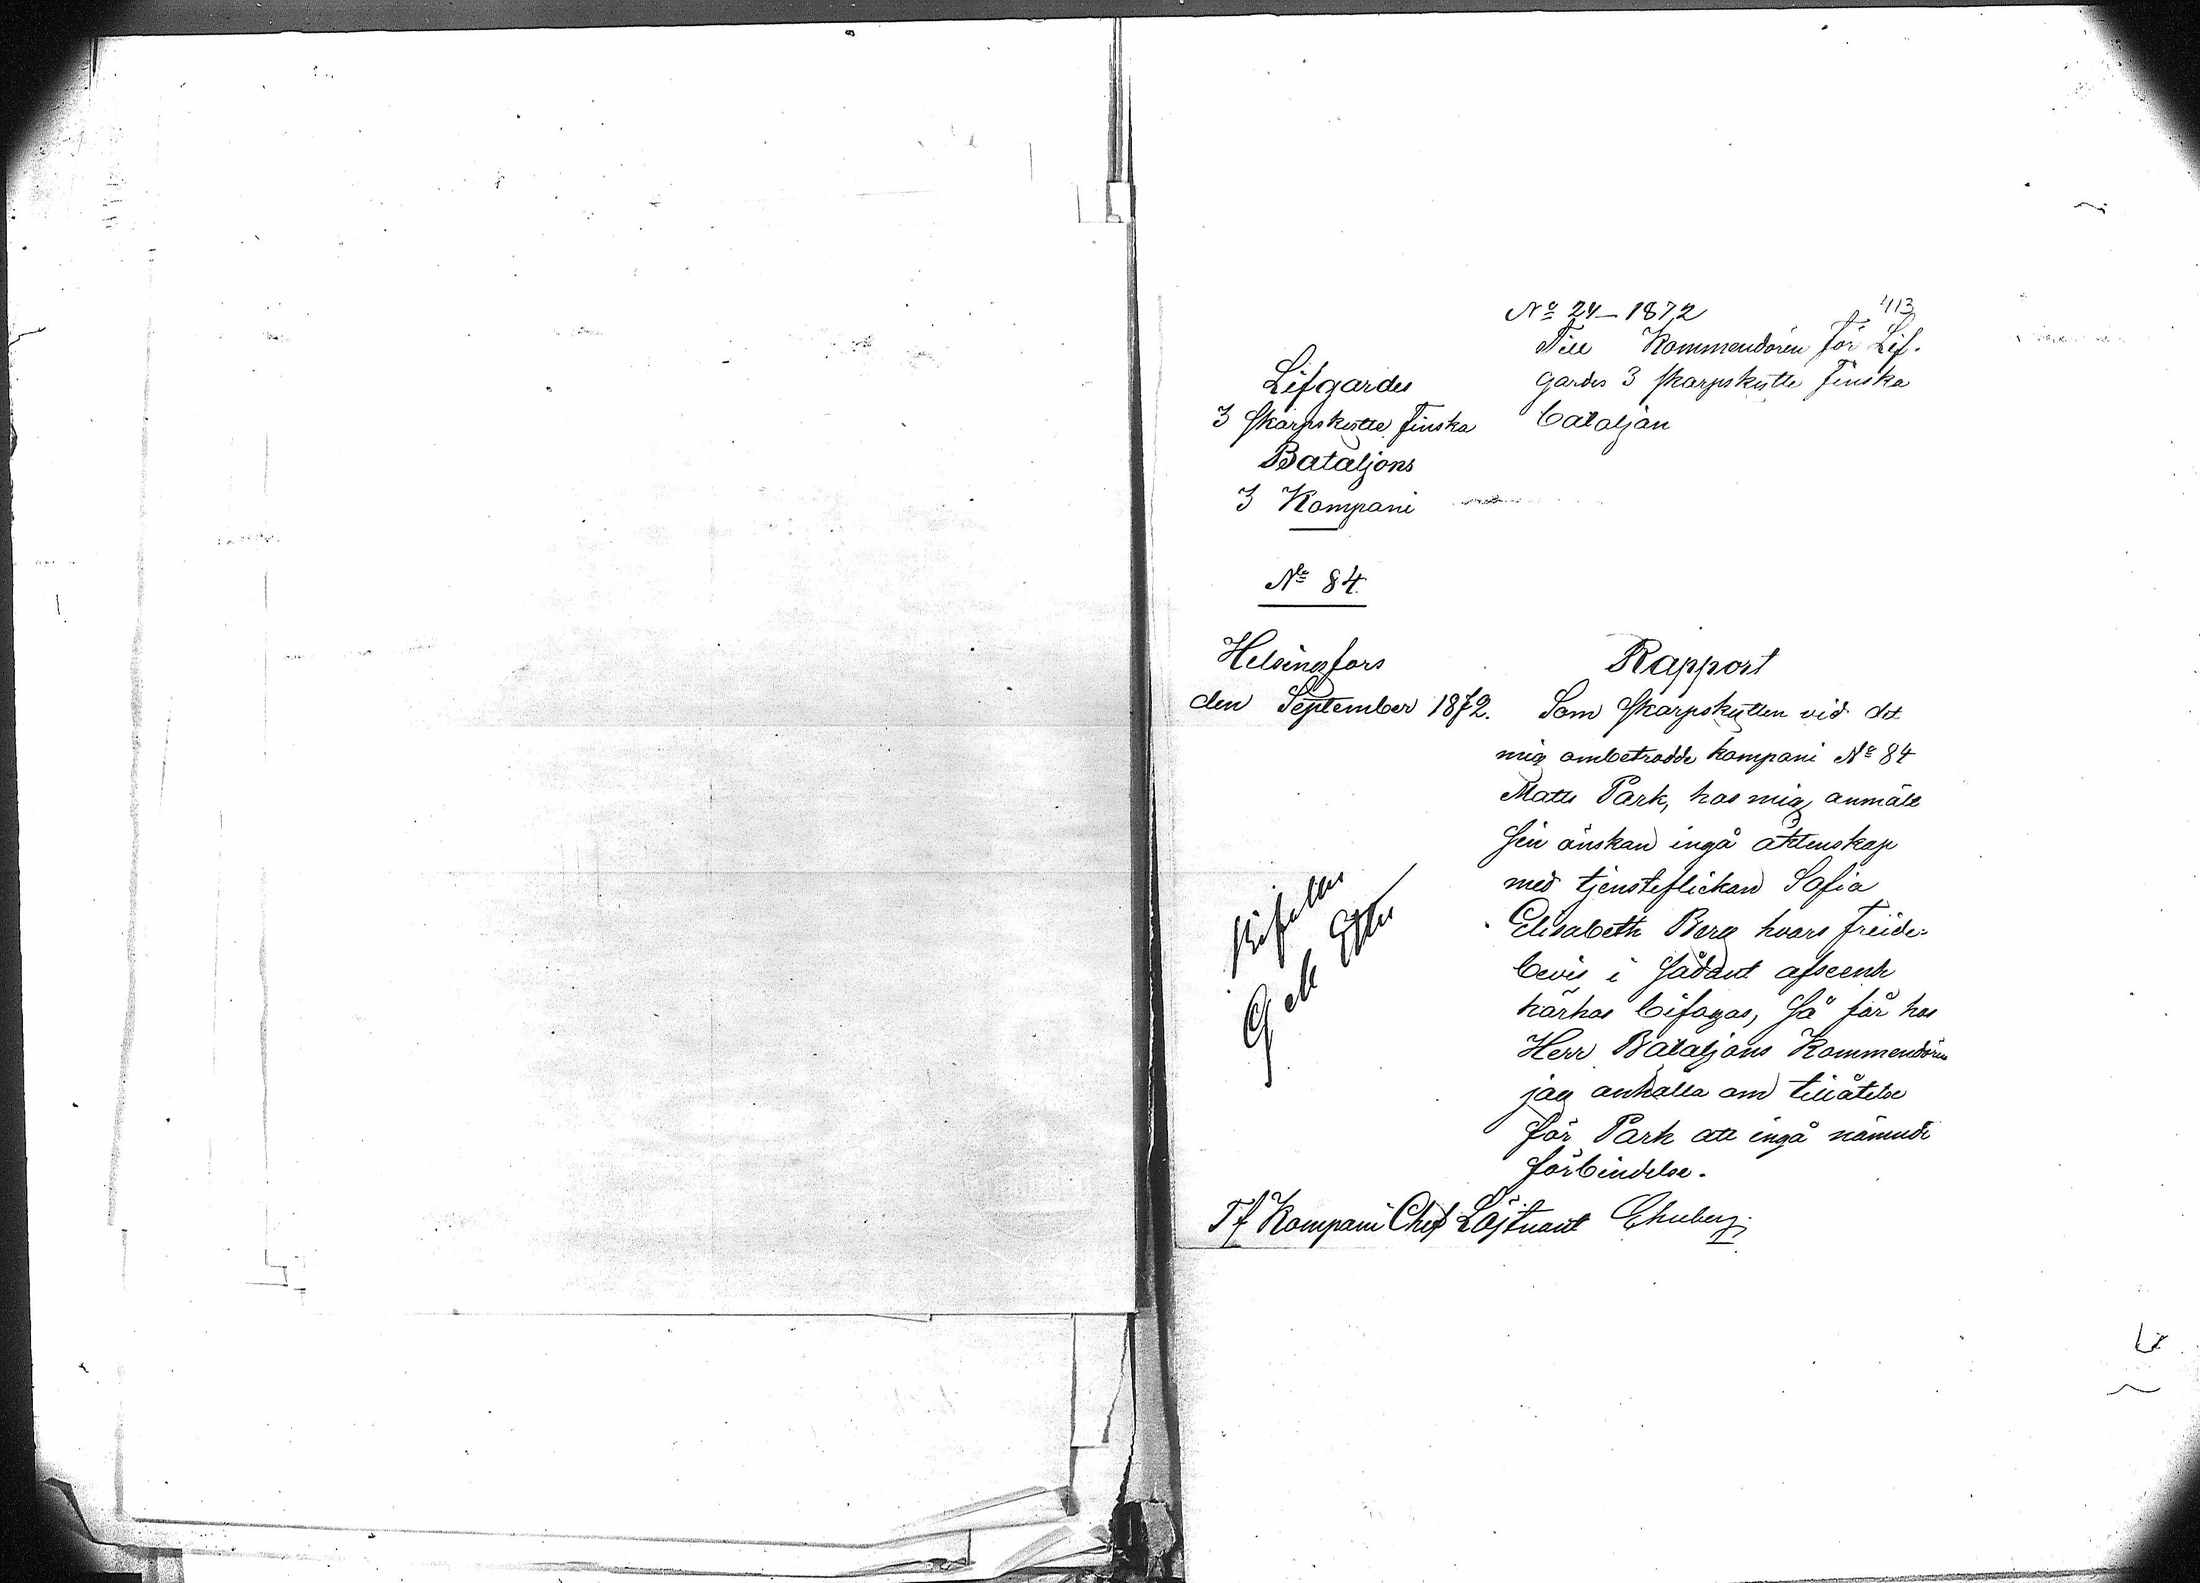 No 24 – 1872
413
Till Kommendören för Lif-
gardes 3 Skarpskytte Finska
bataljon
Lifgardes
3 Skarpskytte Finska
Bataljons
3 Kompani
No 84
Helsingfors
den September 1872.
Rapport
Som Skarpskytten vid det
mig ombetrodde kompani No 84
Matts Park, hos mig anmält
Sin önskan ingå äktenskap
med tjensteflickan Sofia
Elisabeth Berg hvars frejde-
bevis i Sådant afseende
härhos bifogas, Så får hos
Herr Bataljons Kommendören
jag anhålla om tillåtelse
för Park att ingå nämnde
förbindelse.
Tf Kompani Chef Löjtnant Ehnberg.